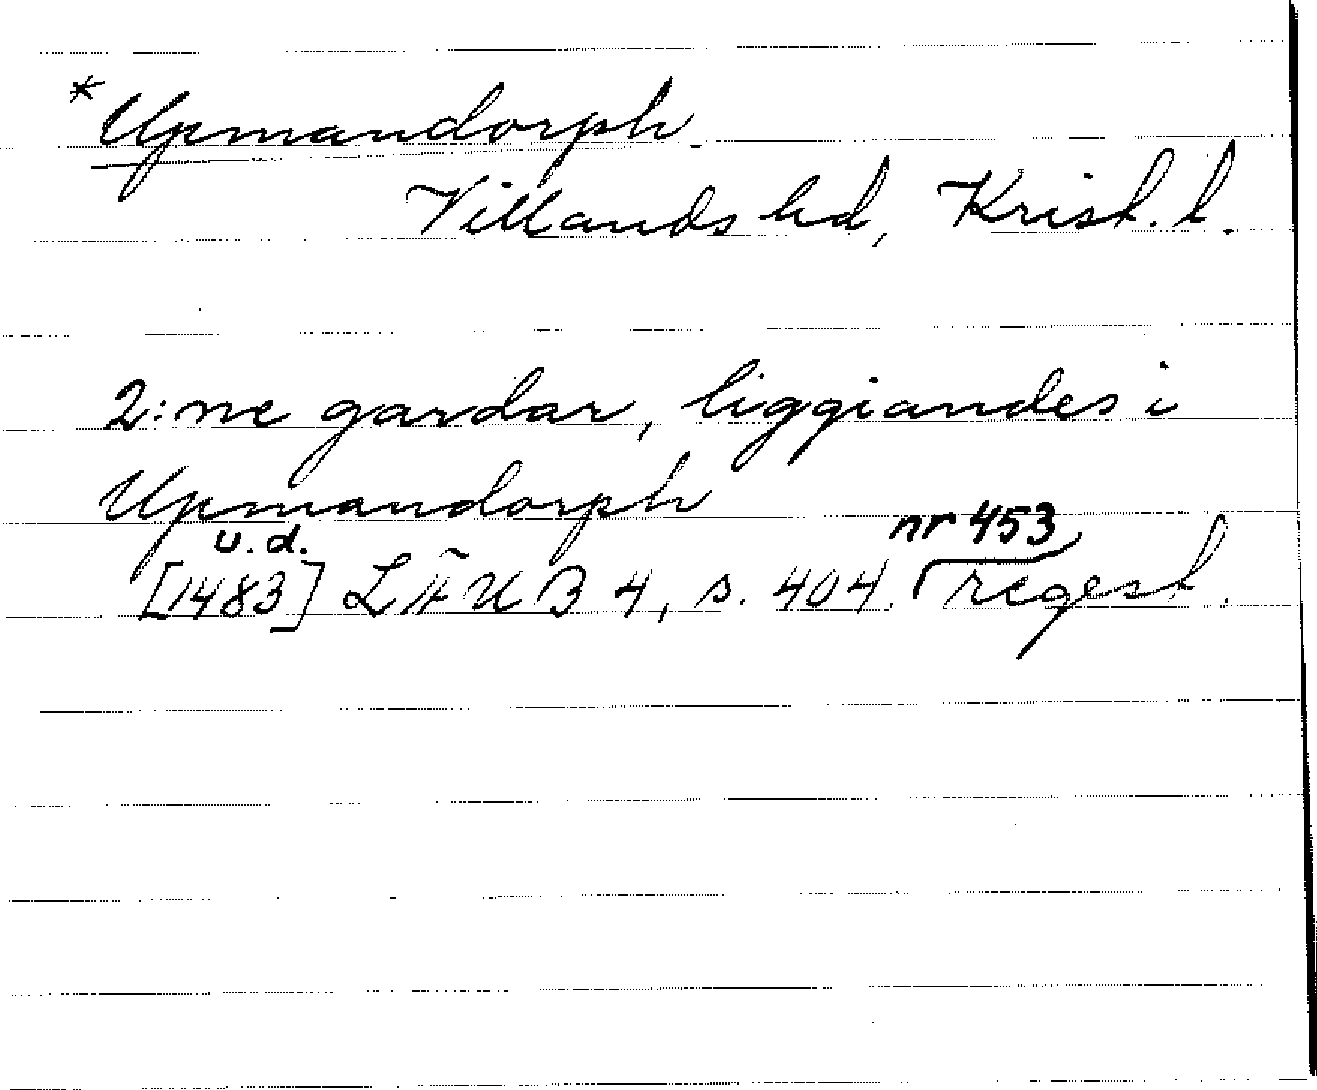 *Upmandorph
Villands hd, Krist. l.
2:ne gardar, liggiandes i
Upmandorph
u.d. nr 453
[1483] LÄUB 4, s. 404. regest.